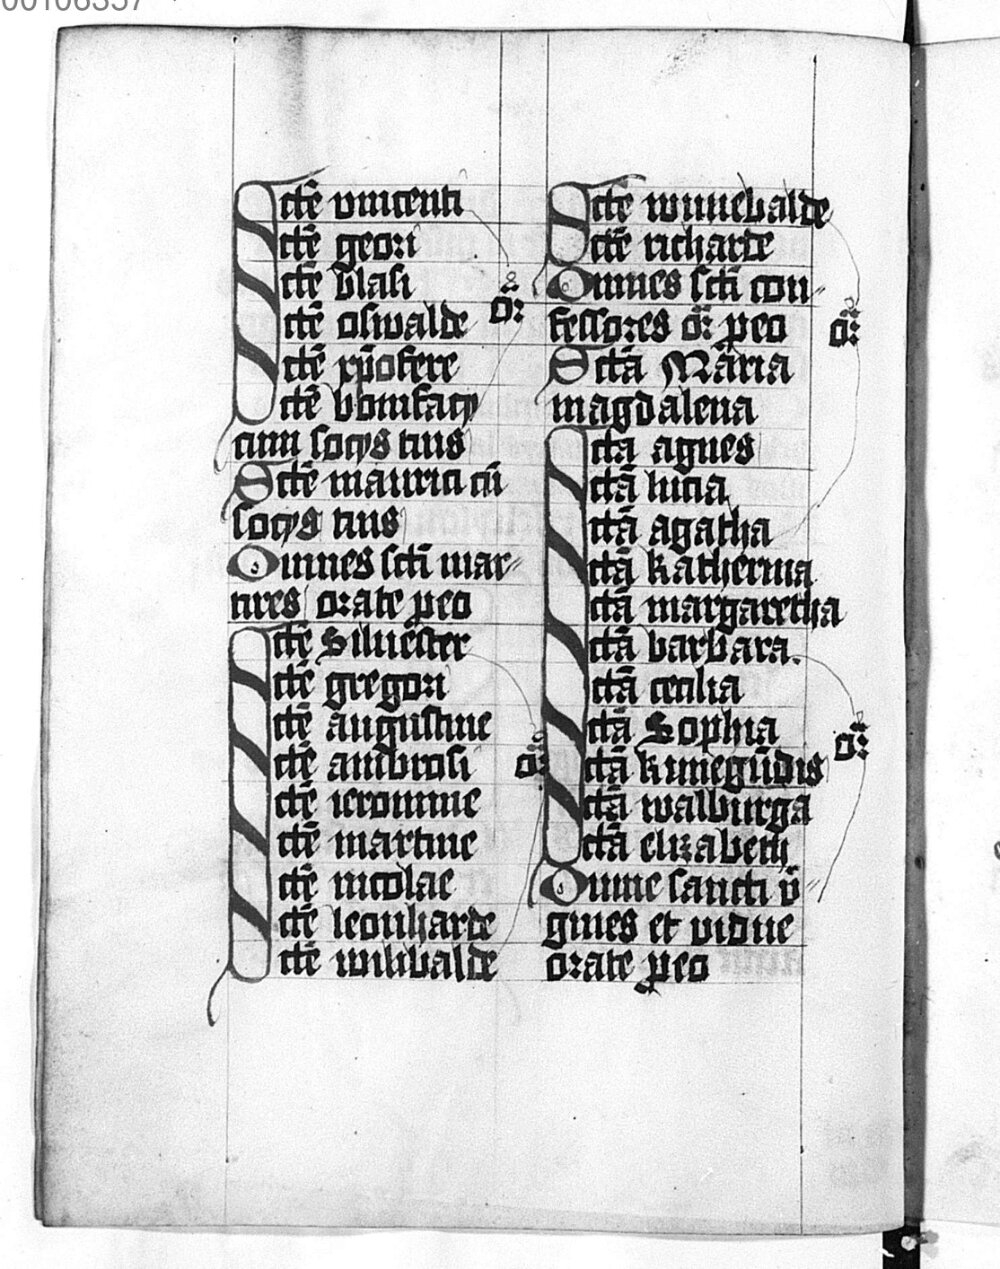 00106357
Sctē vincenti
Sctē geori
Sctē blasi
Sctē oswalde
Sctē xp̄ofere
Sctē bonifacy
cum socys tuis
Sctē maurici cū
socys tuis
Omnes sctī mar-
tires orate p eo
Sctē Siluester
Sctē gregori
Sctē augustine
Sctē ambrosi
Sctē ieronime
Sctē martine
Sctē nicolae
Sctē leonharde
Sctē willibalde
or̄
or̄
Sctē wunebalde
Sctē richarde
Omnes sctī con-
fessores or̄ p eo
Sctā Maria
magdalena
Sctā agnes
Sctā lucia
Sctā agatha
Sctā katherina
Sctā margaretha
Sctā barbara.
Sctā cecilia
Sctā Sophia
Sctā kunegūdis
Sctā walburga
Sctā elizabeth
Omne sancti v̄-
gines et vidue
orate p eo
or̄
or̄